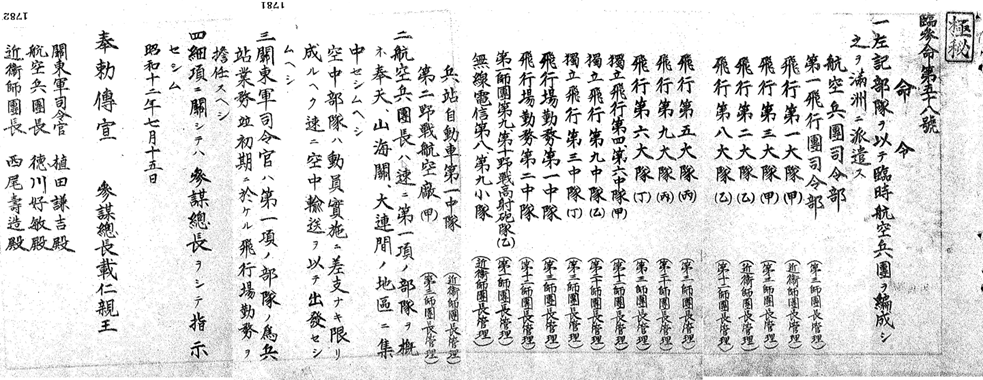 極秘
臨參命第五十八號
命令
一左記部隊ヲ以テ臨時航空兵團ヲ編成シ
之ヲ滿洲ニ派遣ス
航空兵團司令部
第一飛行團司令部 (第一師團長管理)
飛行第一大隊(甲) (近衛師團長管理)
飛行第三大隊(甲)
飛行第二大隊(乙) (近衛師團長管理)
飛行第八大隊(乙)
飛行第五大隊(丙) (第一師團長管理)
飛行第九大隊(丙) (第二十師團長管理)
飛行第六大隊(丁)
獨立飛行第四第六中隊(甲) (第十二師團長管理)
獨立飛行第九中隊(乙)
獨立飛行第三中隊(丁)
飛行場勤務第一中隊
飛行場勤務第二中隊
第一師團第九第十野戰高射砲隊(乙) (第一師團長管理)
無線電信第八第九小隊 (近衛師團長管理)
兵站自動車第一中隊
第二野戰航空廠(甲) (第三師團長管理)
二航空兵團長ハ速ニ第一項ノ部隊ヲ概
ネ奉天、山海關、大連間ノ地區ニ集
中セシムヘシ
空中部隊ハ動員實施ニ差支ナキ限リ
成ルヘク速ニ空中輸送ヲ以テ出發セシ
ムヘシ
三關東軍司令官ハ第一項ノ部隊ノ爲兵
站業務竝初期ニ於ケル飛行場勤務ヲ
擔任スヘシ
四細項ニ關シテハ參謀總長ヲシテ指示
セシム
昭和十二年七月十五日
奉勅傳宣 參謀總長載仁親王
關東軍司令官 植田謙吉殿
航空兵團長 德川好敏殿
近衛師團長 西尾壽造殿
1781
1782